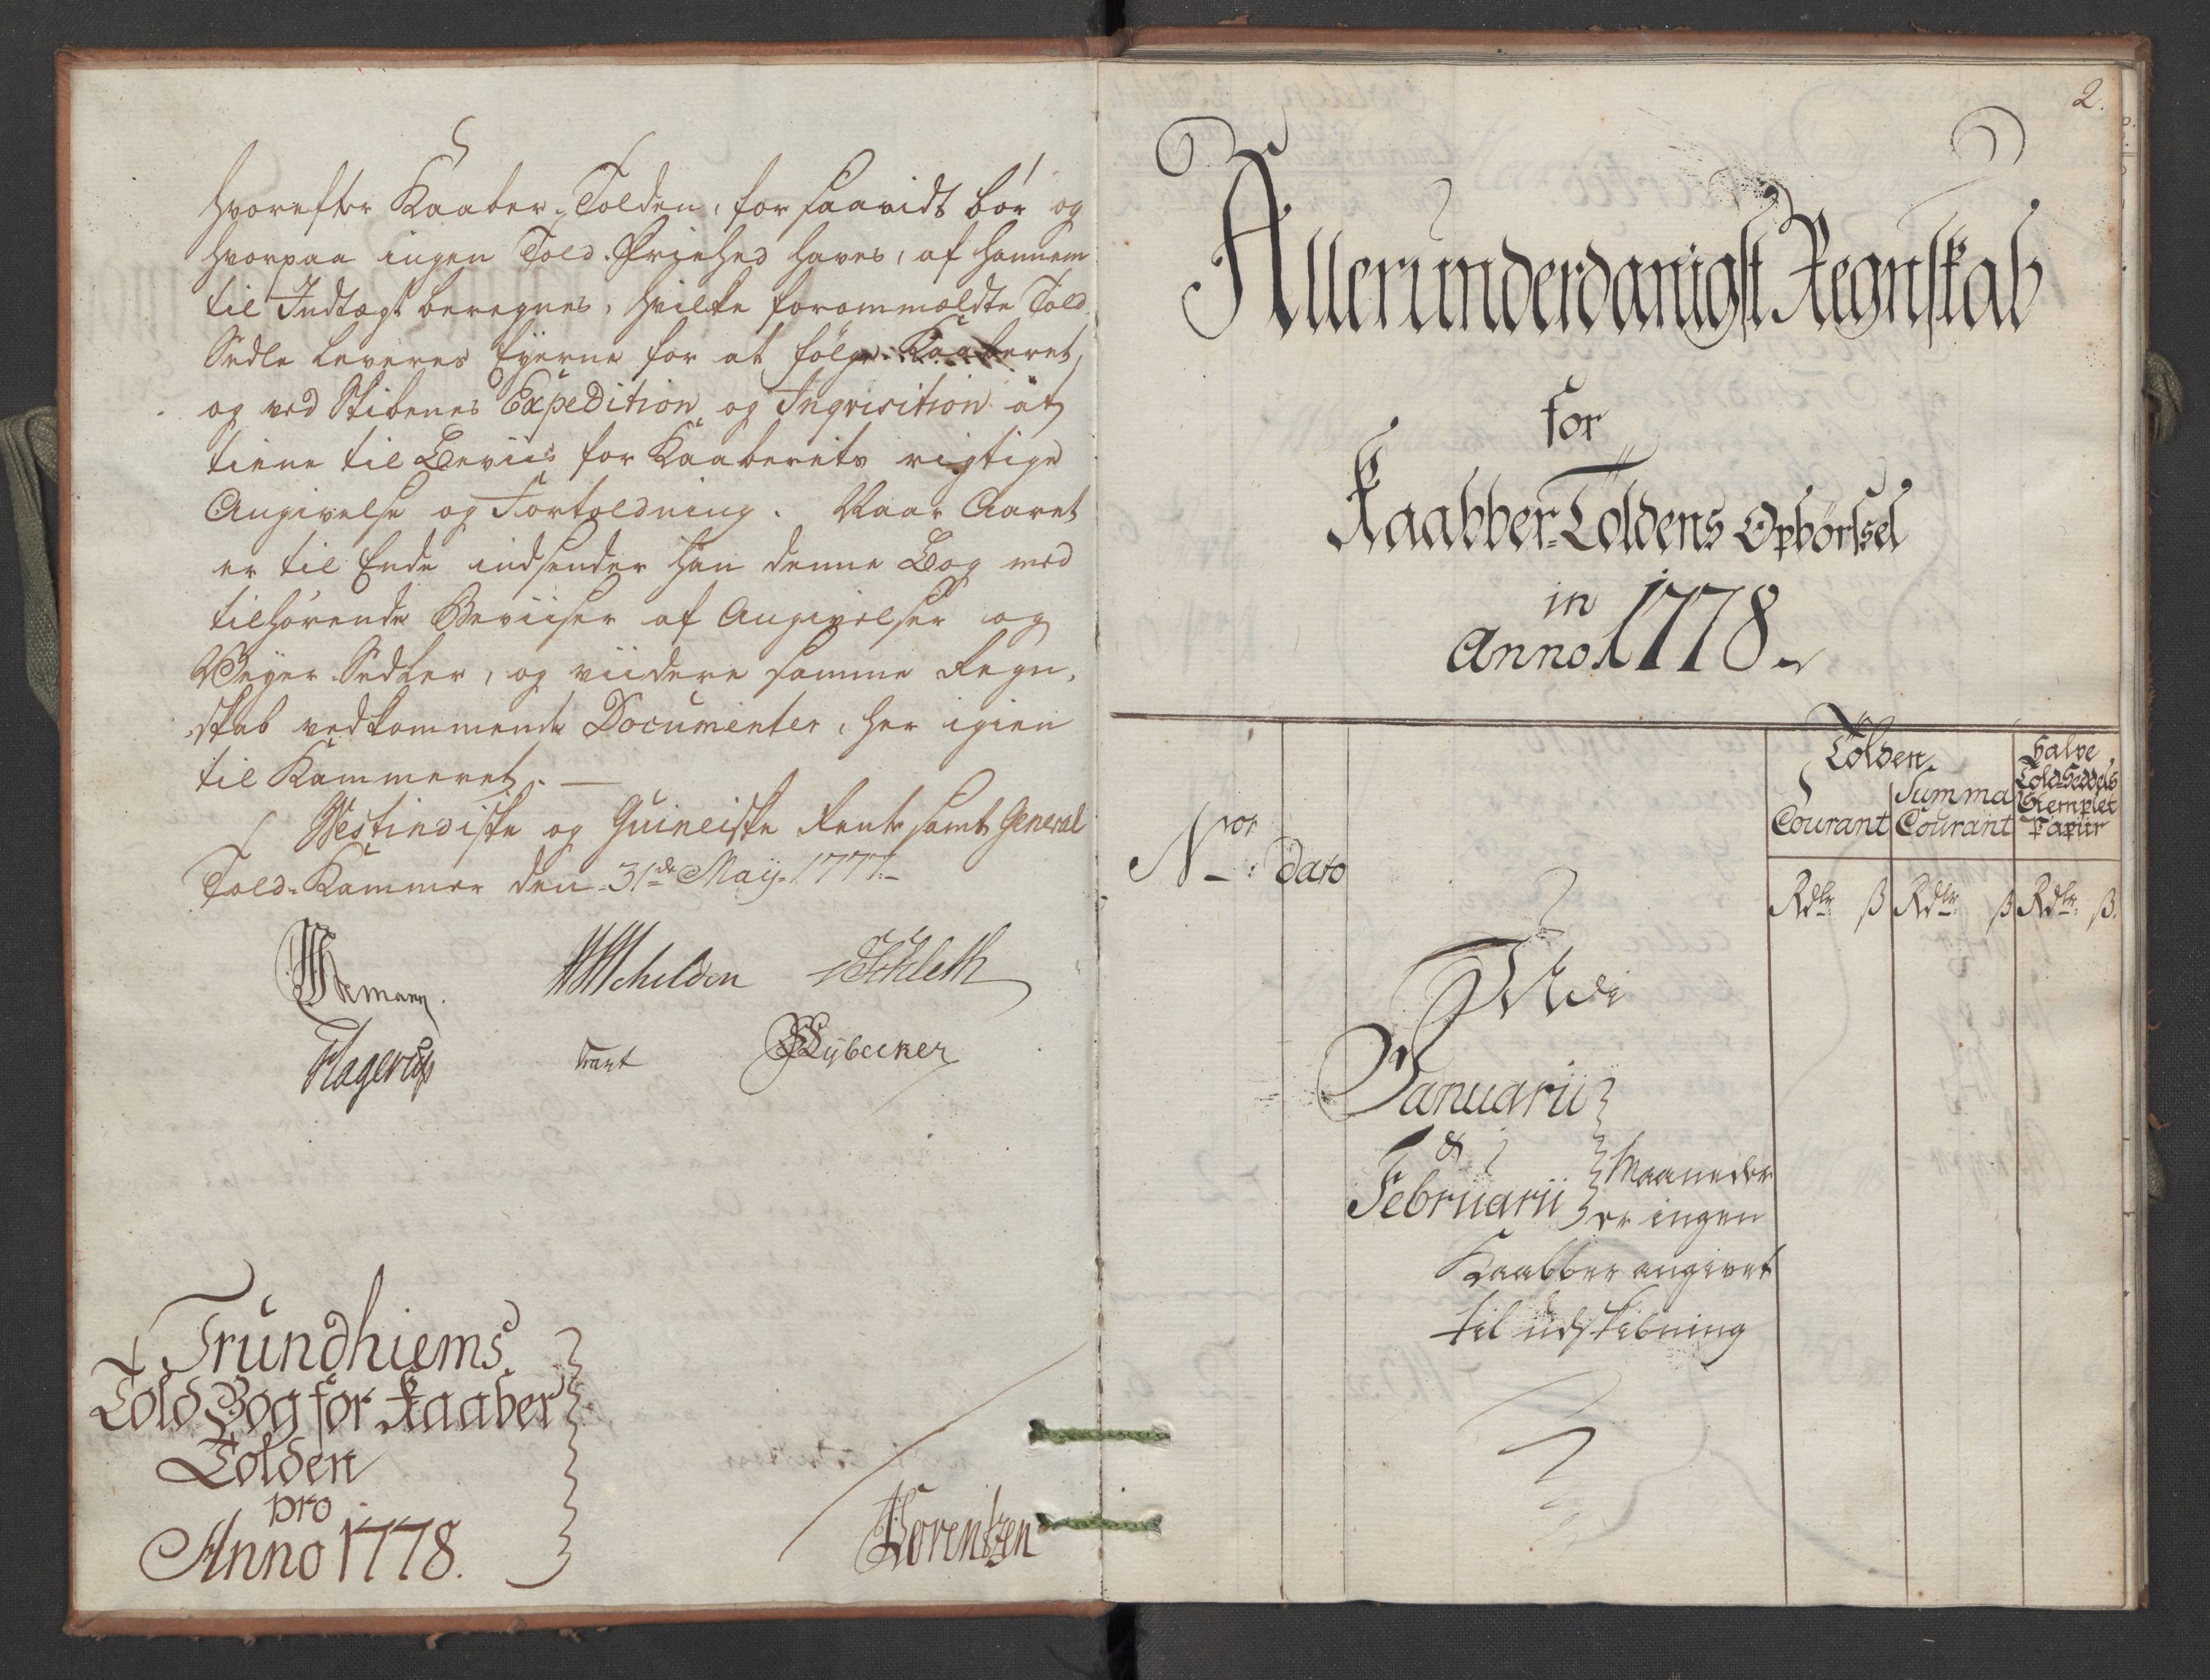 hvorefter Kaaber-Tolden, for saavidt bör og
hvorpaa ingen Told-Friehed haves, af hannem
til Indtægt beregnes, hvilke forommældte Told
Sedle leveres Eyerne for at følge Kaaberet,
og ved Skibenes Expedition og Inqvisition at
tiene til Beviis for Kaaberets rigtige
Angivelse og Fortoldning. Naar Aaret
er til Ende indsender han denne Bog med
tilhørende Beviiser af Angivelser og
Veyer Sedler, og viidere samme Regn-
skab vedkommende Documenter, her igien
til Kammeret. —
Vestindiske og Guineiske Rente samt General
Told-Kammer den 31de Maij 1777.
Schilden
Hagerup Lybecker
Trundhiems
Told Bog for Kaaber
Tolden
pro
Anno 1778.
Lorentzen
2.
Allerunderdanigst Regnskab
for
Kaabber-Toldens Opbørssel
in
Anno 1778
Nor: Dato
Tolden
Courant
Summa Courant
Halve Told-Seddels Stemplet Papiir
Rdlr ß Rdlr ß Rdlr ß.
Januarii
&
Februarii Maaneder
er ingen
Kaabber angivet
til udskibning